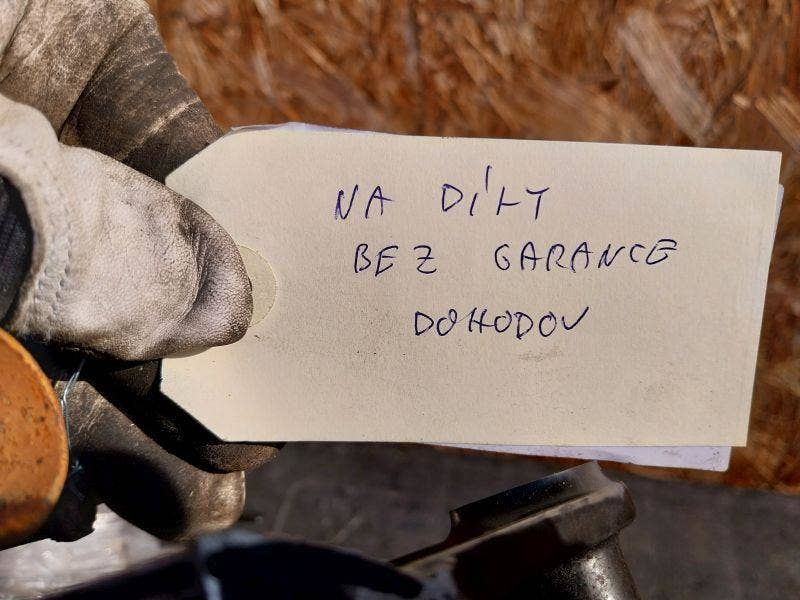 NA DÍLY
BEZ GARANCE
DOHODOU